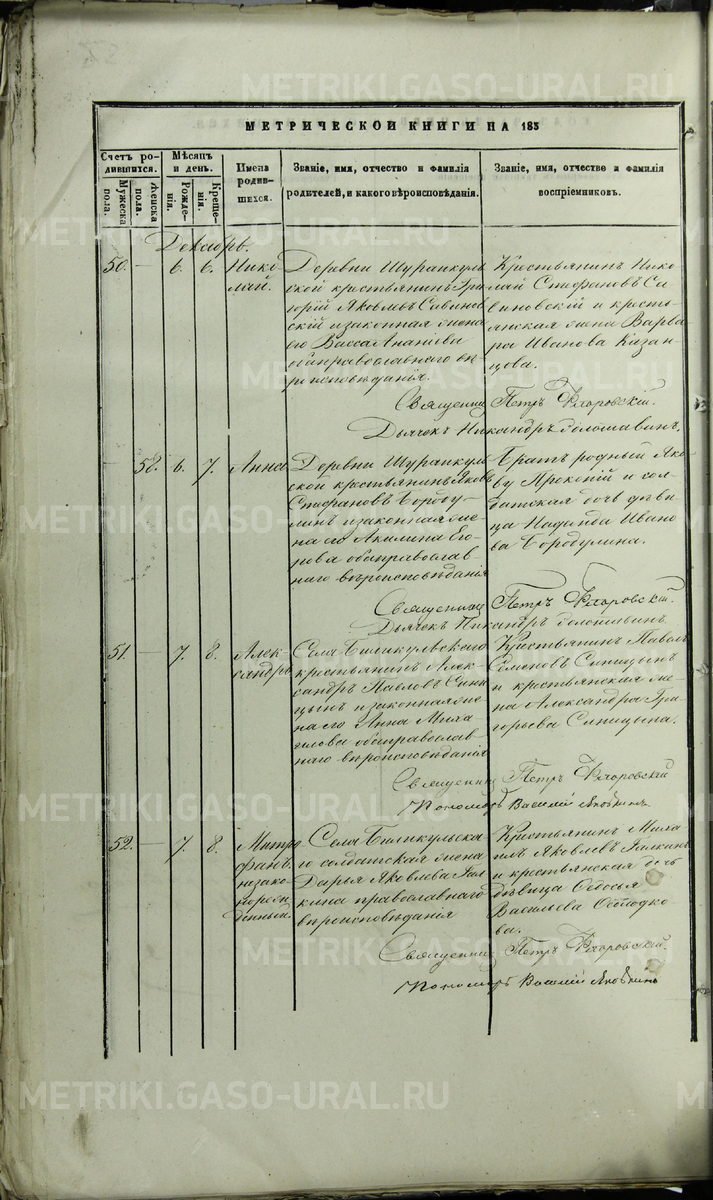 МЕТРИЧЕСКОЙ КНИГИ НА 185
Счетъ ро-
дившихся.
Мужеска
пола.
Женска
пола.
Мѣсяцъ
и день.
Рожде-
нія.
Креще-
нія.
Имена
родив-
шихся.
Званіе, имя, отчество и фамилія
родителей, и какого вѣроисповѣданія.
Званіе, имя, отчество и фамилія
воспріемниковъ.
Декабрь.
50. — 6. 6.
Нико
лай.
Деревни Шуранкуль
ской крестьянинъ Гри
горій Яковлевъ Савинов
скій и законная жена
его Васса Ананіева
оба православнаго вѣ
роисповѣданія.
Крестьянинъ Нико
лай Стефановъ Са
виновскій и кресть
янская жена Варва
ра Иванова Казан
цова.
Священникъ Петръ Флоровскій.
Дьячекъ Никандръ
— 58. 6. 7.
Анна
Деревни Шуранкуль
ской крестьянинъ Яковъ
Стефановъ Бороду
линъ и законная же
на его Акилина Его
рова оба православ
наго вѣроисповѣданія
Братъ родный Яко
ву Прокопій и сол
датская дочь дѣви
ца Надежда Ивано
ва Бородулина.
Священникъ Петръ Флоровскій.
Дьячекъ Никандръ
51. — 7. 8.
Алек
сандръ
Села Биликульскаго
крестьянинъ Алек
сандръ Павловъ Сини
цынъ и законная же
на его Анна Миха
илова оба православ
наго вѣроисповѣданія
Крестьянинъ Павелъ
Семеновъ Синицынъ
и крестьянская же
на Александра Гри
горьева Синицына.
Священникъ Петръ Флоровскій
Пономарь Василій Яковкинъ
52. — 7. 8.
Митро
фанъ
незако
норож
денный
Села Биликульска
го солдатская жена
Дарья Яковлева Гал
кина православнаго
вѣроисповѣданія
Крестьянинъ Миха
илъ Яковлевъ Галкинъ
и крестьянская дочь
дѣвица Ѳедосья
Васильева
ва.
Священникъ Петръ Флоровскій.
Пономарь Василій Яковкинъ
METRIKI.GASO-URAL.RU